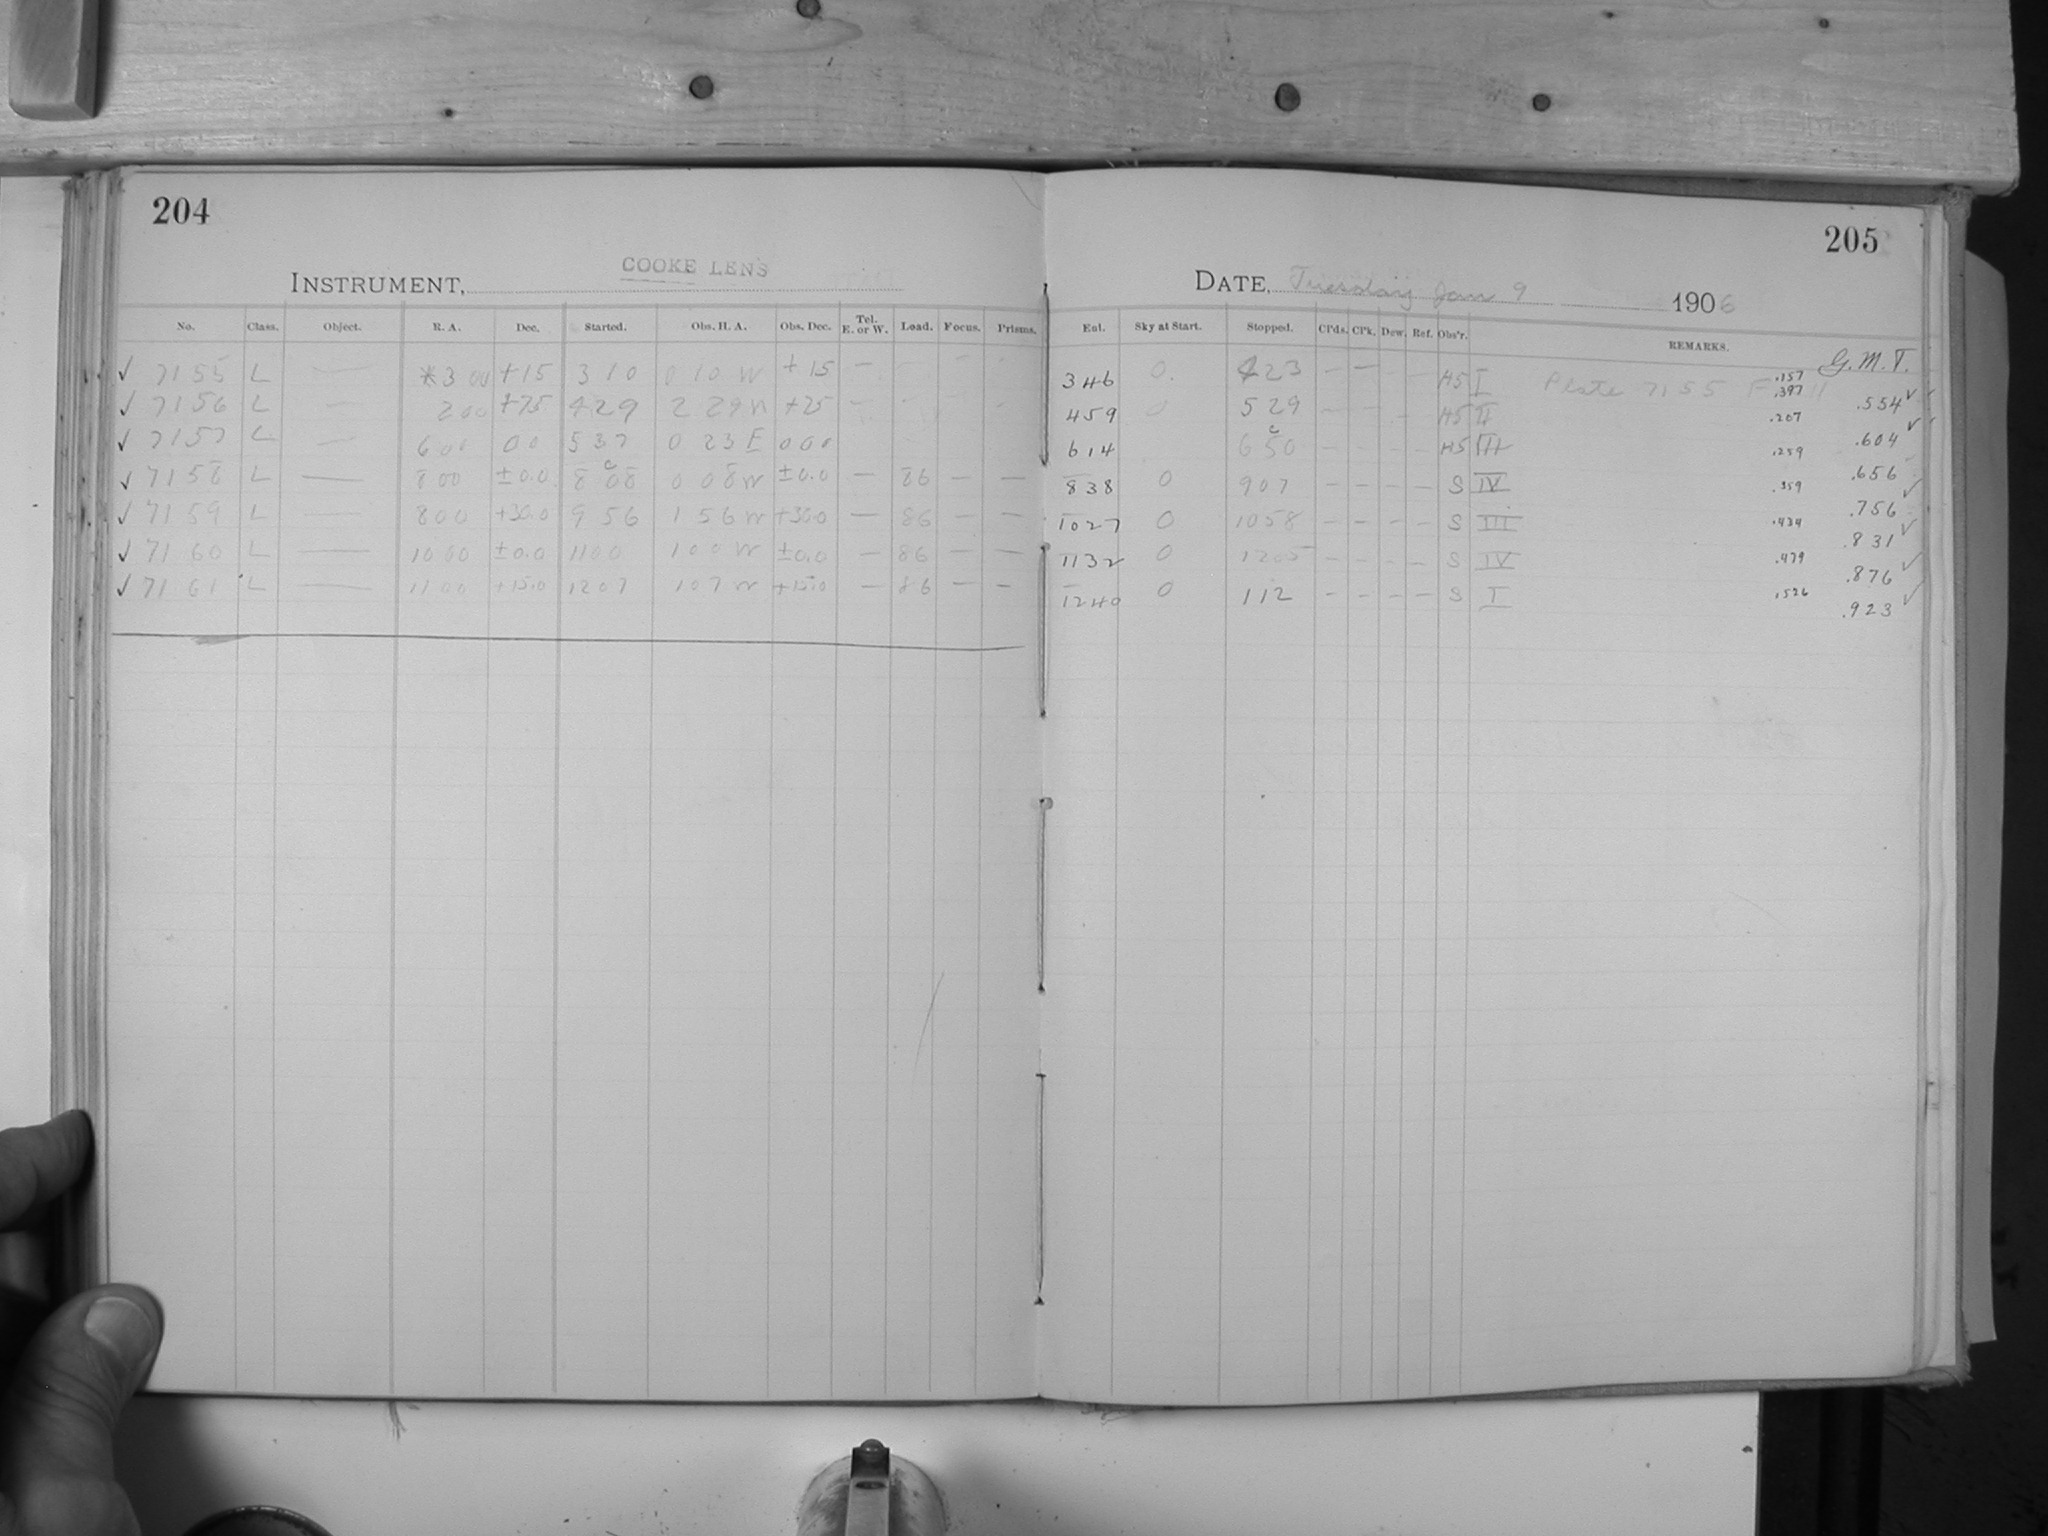 204
COOKE LENS
INSTRUMENT,
No. Class. Object. R. A. Dec. Started. Obs. H. A. Obs. Dec. Tel. E. or W. Load. Focus. Prisms.
✓ 7155 L — *3 00 +15 3 10 0 10 W +15 —
✓ 7156 L — 2 00 +75 4 29 2 29 W +75 —
✓ 7157 L — 6 00 00 5 37 0 23 E 000
✓ 7158 L — 8 00 ±0.0 8 08 0 08 W ±0.0 — 86 — —
✓ 7159 L — 8 00 +30.0 9 56 1 56 W +30.0 — 86 — —
✓ 7160 L — 10 00 ±0.0 11 00 1 00 W ±0.0 — 86 — —
✓ 7161 L — 11 00 +15.0 12 07 1 07 W +15.0 — 86 — —
205
DATE, Tuesday Jan 9 1906
Eut. Sky at Start. Stopped. Cl'ds. Cl'k. Dew. Ref. Obs'r. REMARKS.
G.M.T.
3 46 0 4 23 — — — HS I Plate 7155 .157 .397 .554 ✓
4 59 0 5 29 — — — — HS II .207 .604 ✓
6 14 6 50 — — — — HS III .259 .656
8 38 0 9 07 — — — — S IV .359 .756 ✓
10 27 0 10 58 — — — — S III .434 .831 ✓
11 32 0 12 05 — — — — S IV .479 .876 ✓
12 40 0 1 12 — — — — S I .526 .923 ✓